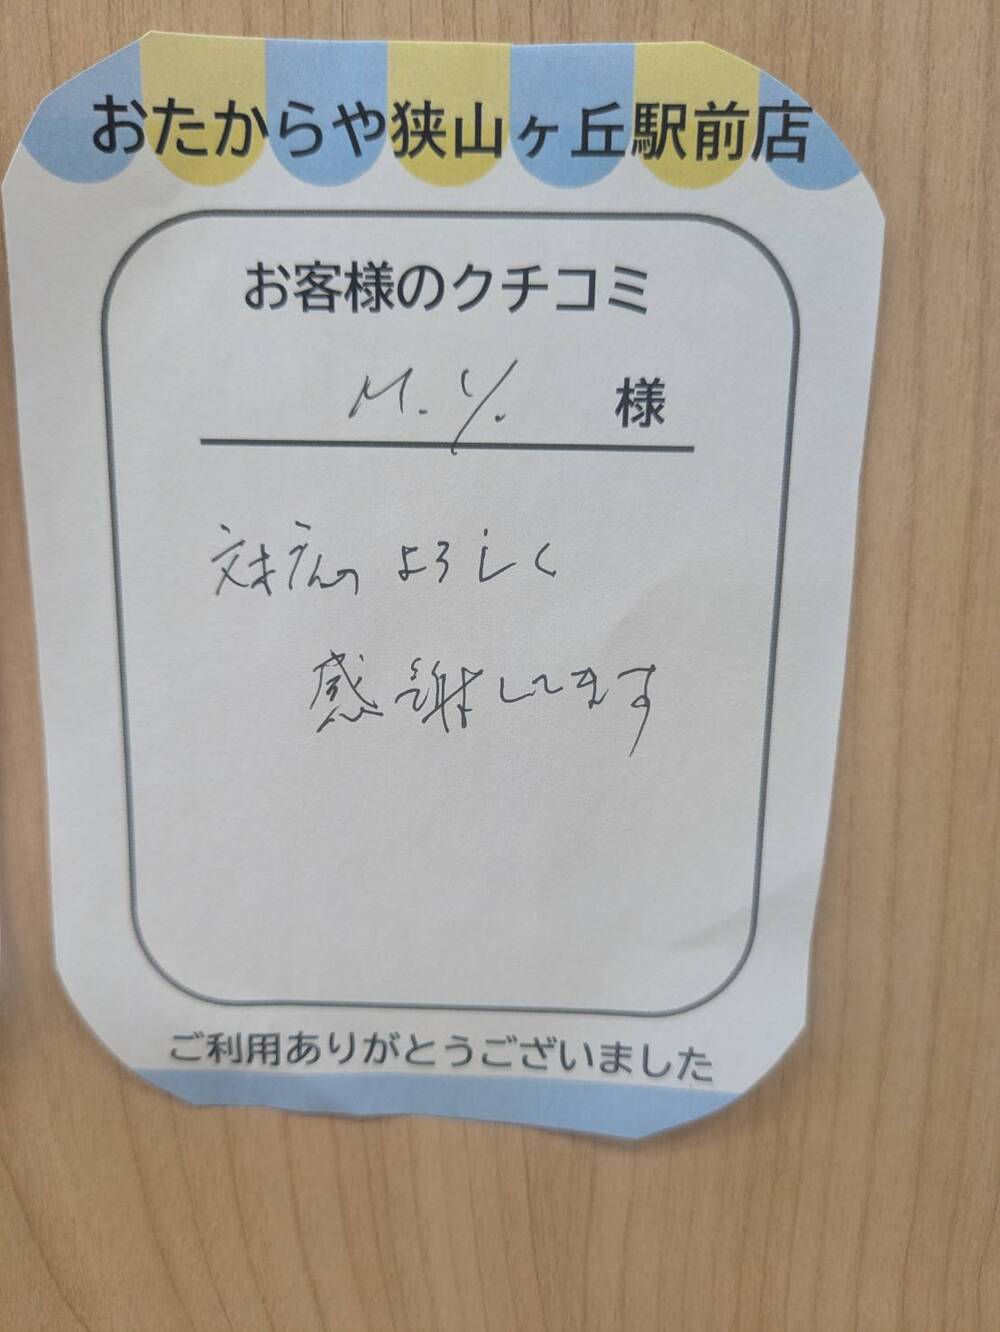 おたからや狭山ヶ丘駅前店
お客様のクチコミ
M.Y. 様
対応の よろしく
感謝してます
ご利用ありがとうございました